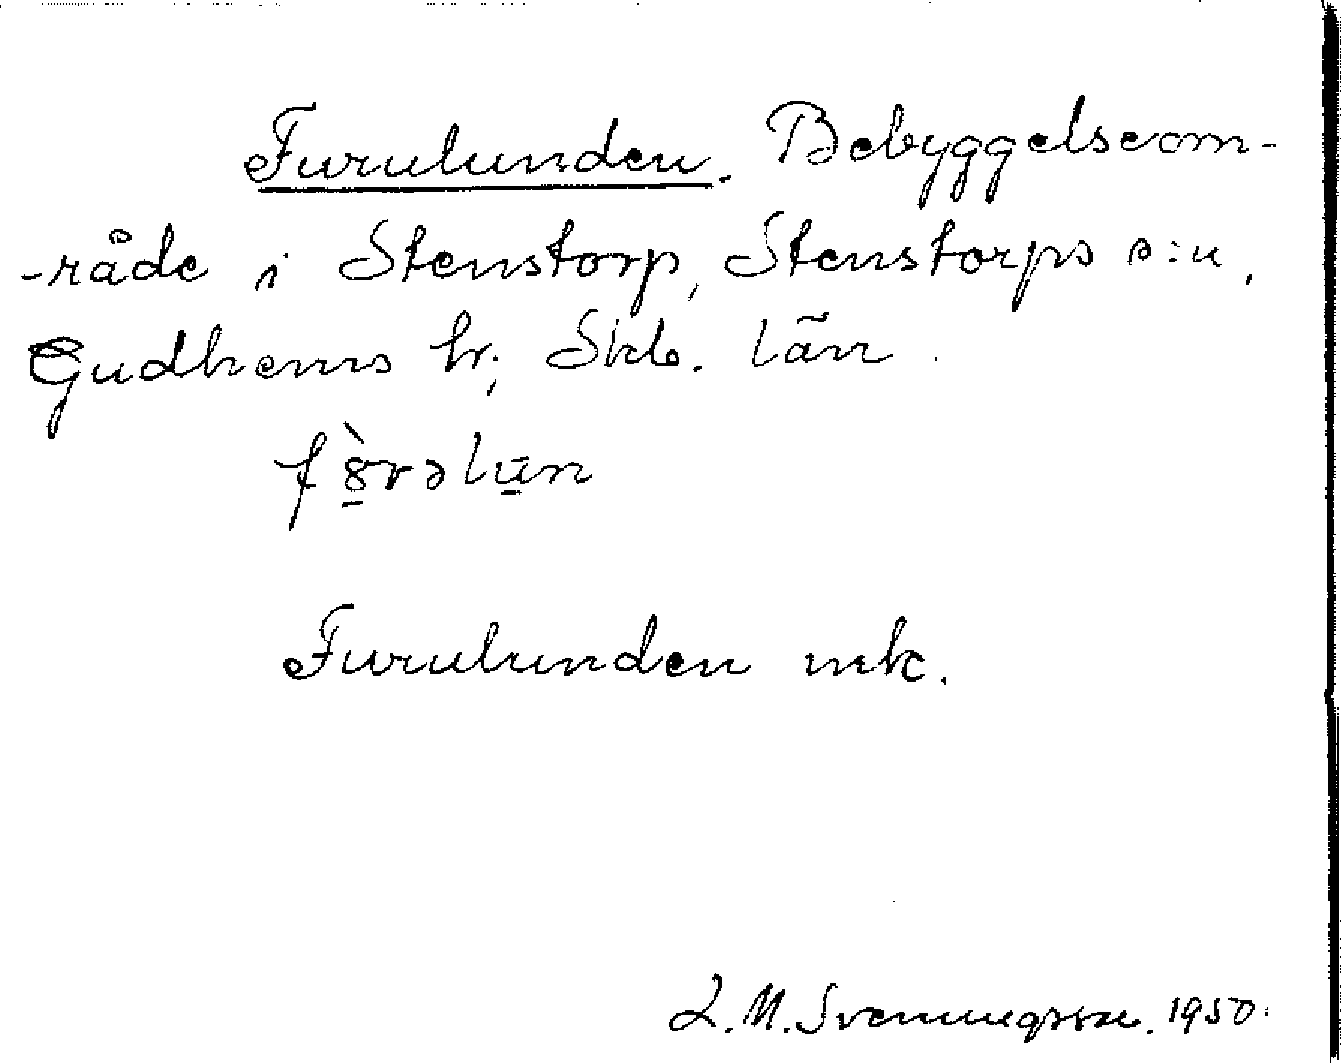 Furulunden. Bebyggelseom-
-råde i Stenstorp, Stenstorps s:n,
Gudhems hr; Skb. län.
Furulunden mk.
L. M. Svenungsson. 1950.